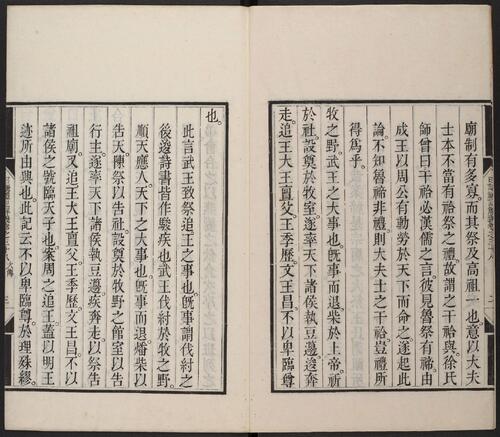 廟制有多寡。而其祭及高祖一也。意以大夫
士本不當有祫祭之禮。故謂之干祫與。徐氏
師曾曰干祫必漢儒之言。彼見魯祭有禘。由
成王以周公有勳勞於天下而命之。遂起此
論。不知魯禘非禮。則大夫士之干祫。豈禮所
得爲乎。
牧之野。武王之大事也。旣事而退。柴於上帝。祈
於社。設奠於牧室。遂率天下諸侯執豆籩逡奔
走。追王大王亶父。王季歷。文王昌。不以卑臨尊
也。
此言武王致祭追王之事也。旣事謂伐紂之
後。逡詩書皆作駿。疾也。武王伐紂於牧之野。
順天應人。天下之大事也。旣事而退。燔柴以
告天。陳祭以告社。設奠於牧野之館室。以告
行主。遂率天下諸侯執豆籩。疾奔走。以祭告
祖廟。又追王大王亶父。王季歷。文王昌。不以
諸侯之號臨天子也。案周之追王。蓋以明王
迹所由興也。此記云不以卑臨尊。於理殊繆。